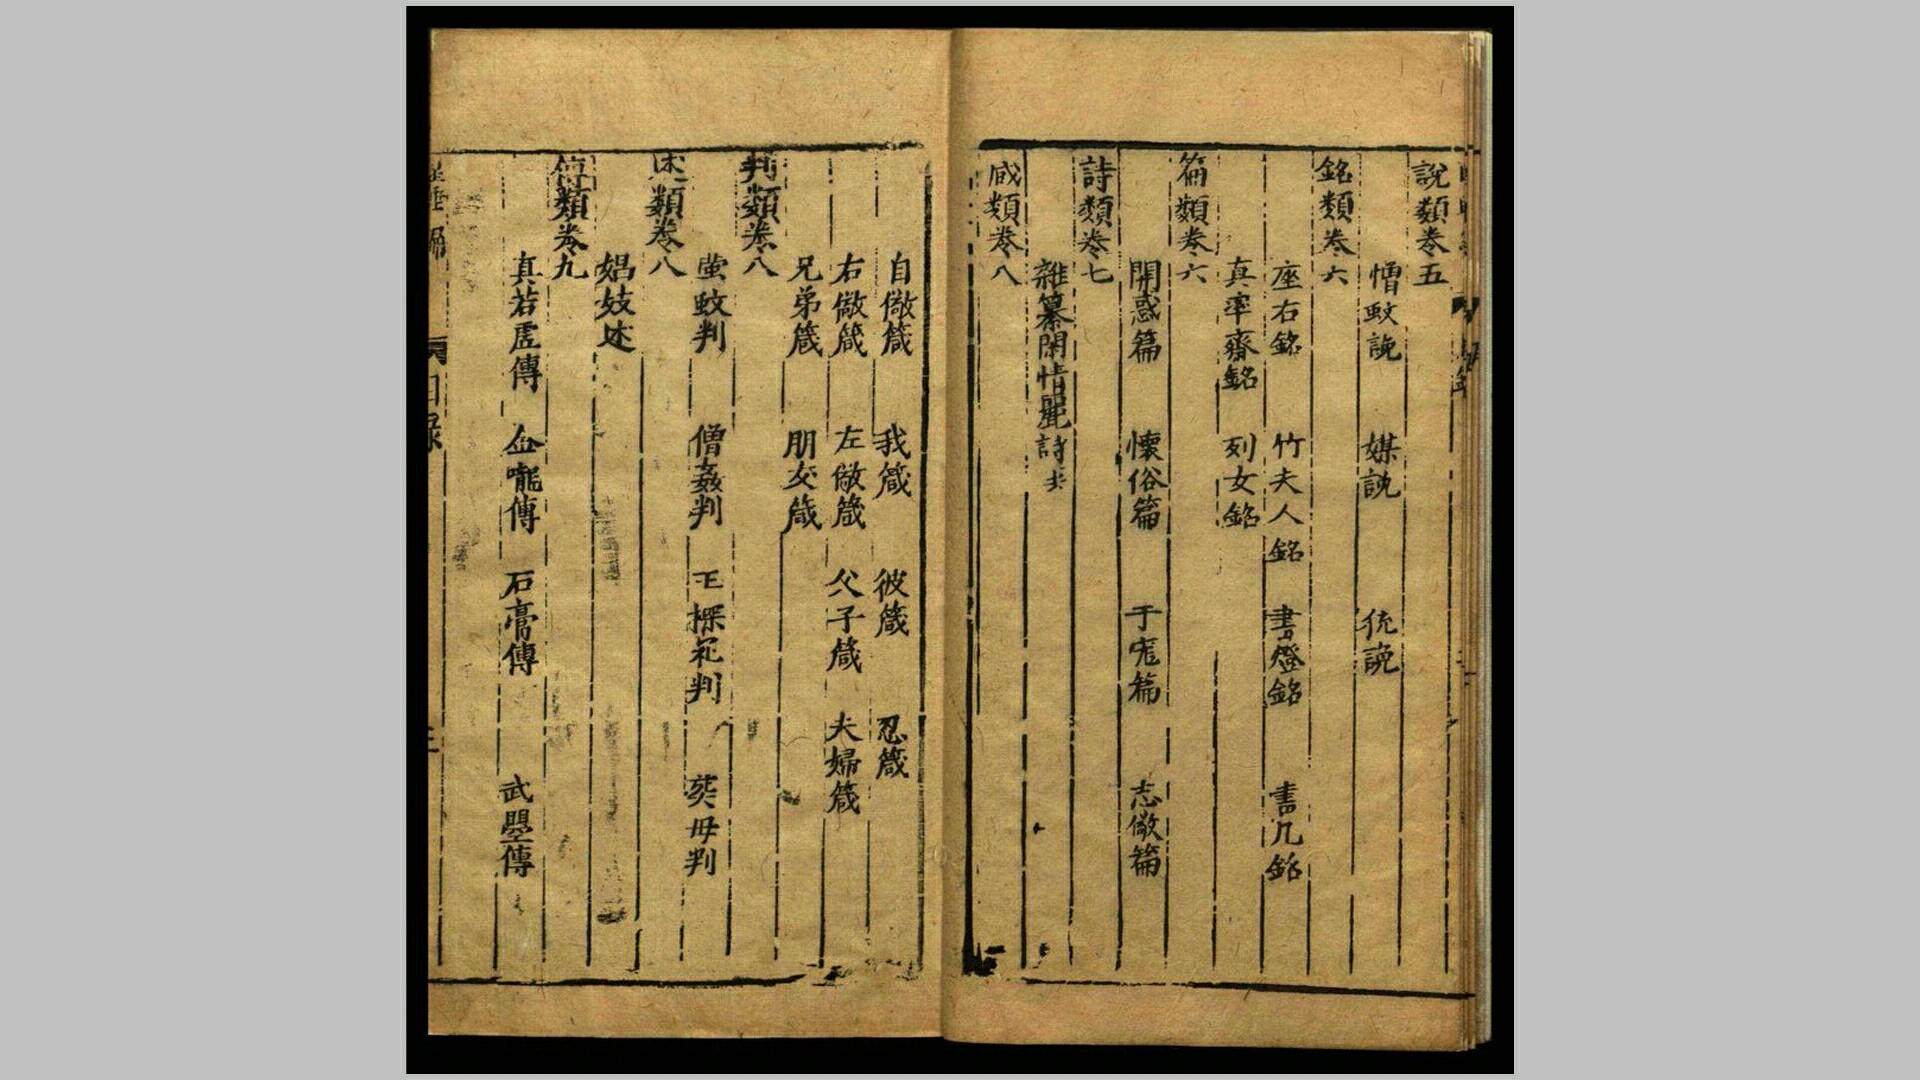 說類卷五
憎蚊說 媒說 統說
銘類卷六
座右銘 竹夫人銘 書燈銘 書几銘
真率齋銘 列女銘
篇類卷六
開惑篇 懷俗篇 于蒐篇 志儆篇
詩類卷七
雜纂閑情麗詩
咸類卷八
自儆箴 我箴 彼箴 忍箴
右儆箴 左儆箴 父子箴 夫婦箴
兄弟箴 朋友箴
判類卷八
蛍蚊判 僧姦判 判 葵毋判
述類卷八
娼妓述
傳類卷九
真若虛傳 傳 石膏傳 武曌傳
目錄